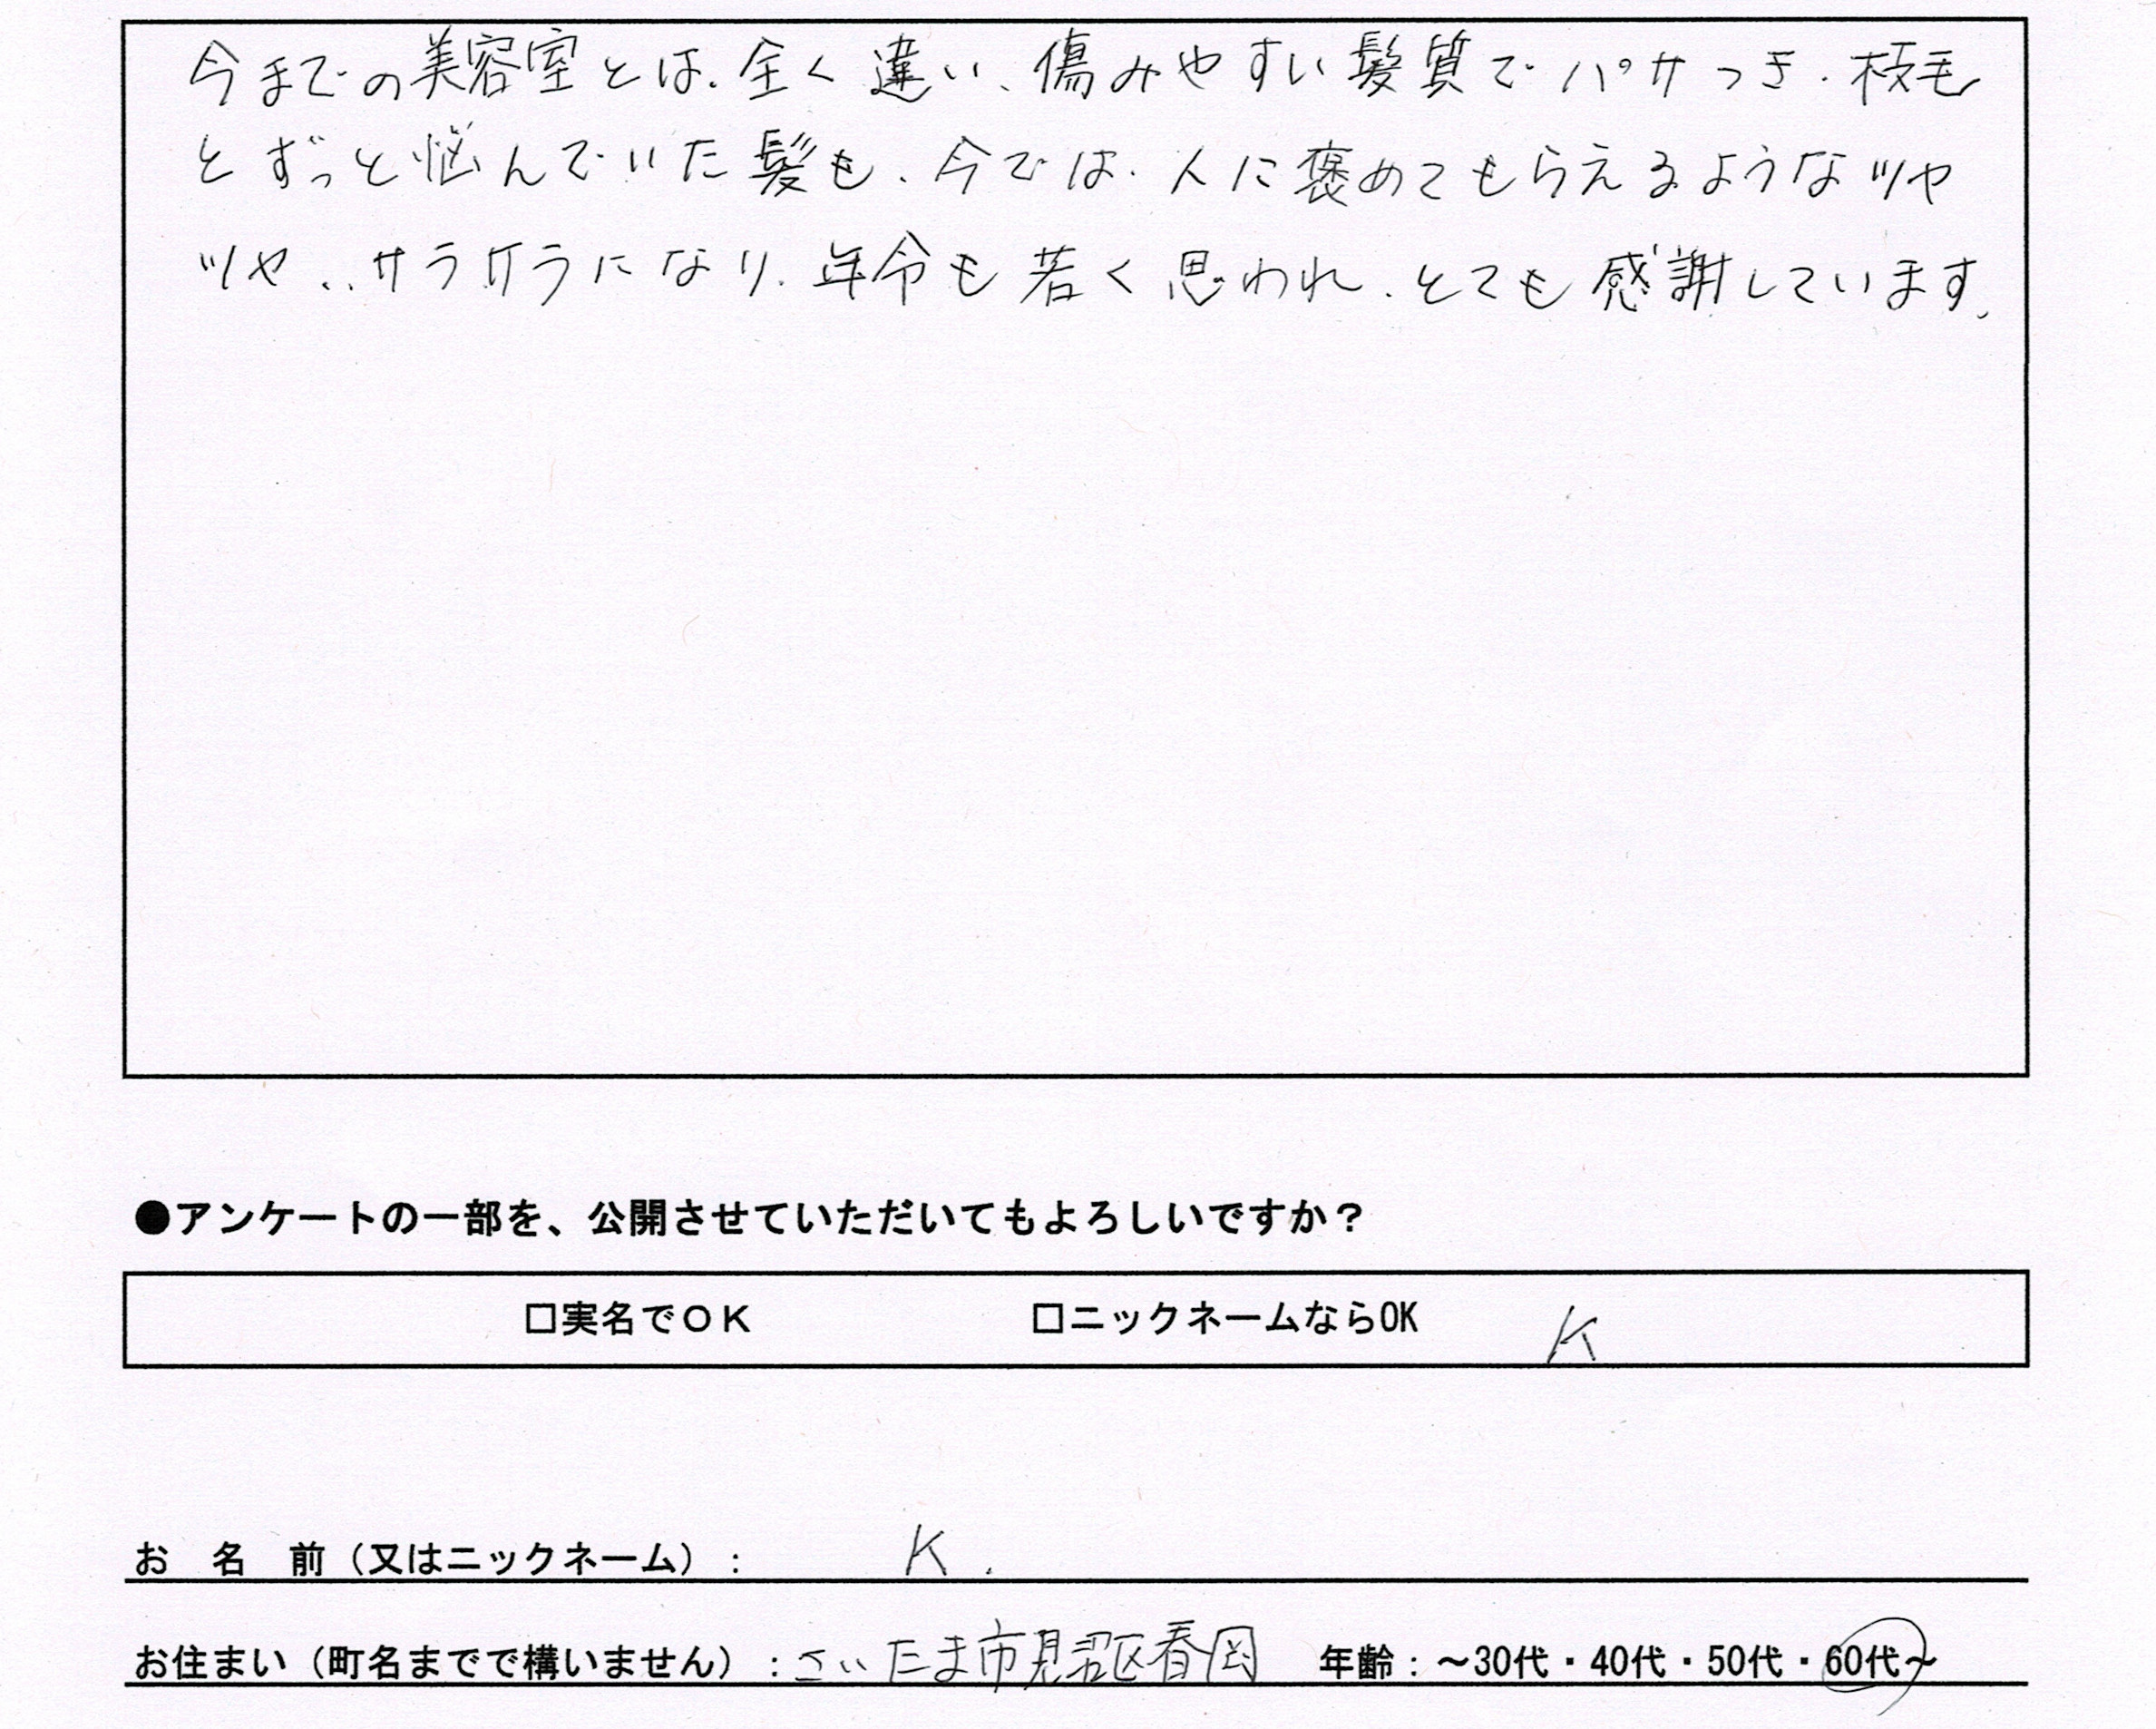 今までの美容室とは、全く違い、傷みやすい髪質でパサつき、枝毛
とずっと悩んでいた髪も、今では、人に褒めてもらえるようなツヤ
ツヤ、、サラサラになり、年令も若く思われ、とても感謝しています。
●アンケートの一部を、公開させていただいてもよろしいですか？
□実名でＯＫ □ニックネームならOK K
お　名　前（又はニックネーム）： K.
お住まい（町名までで構いません）：さいたま市見沼区春岡 年齢：～30代・40代・50代・60代～